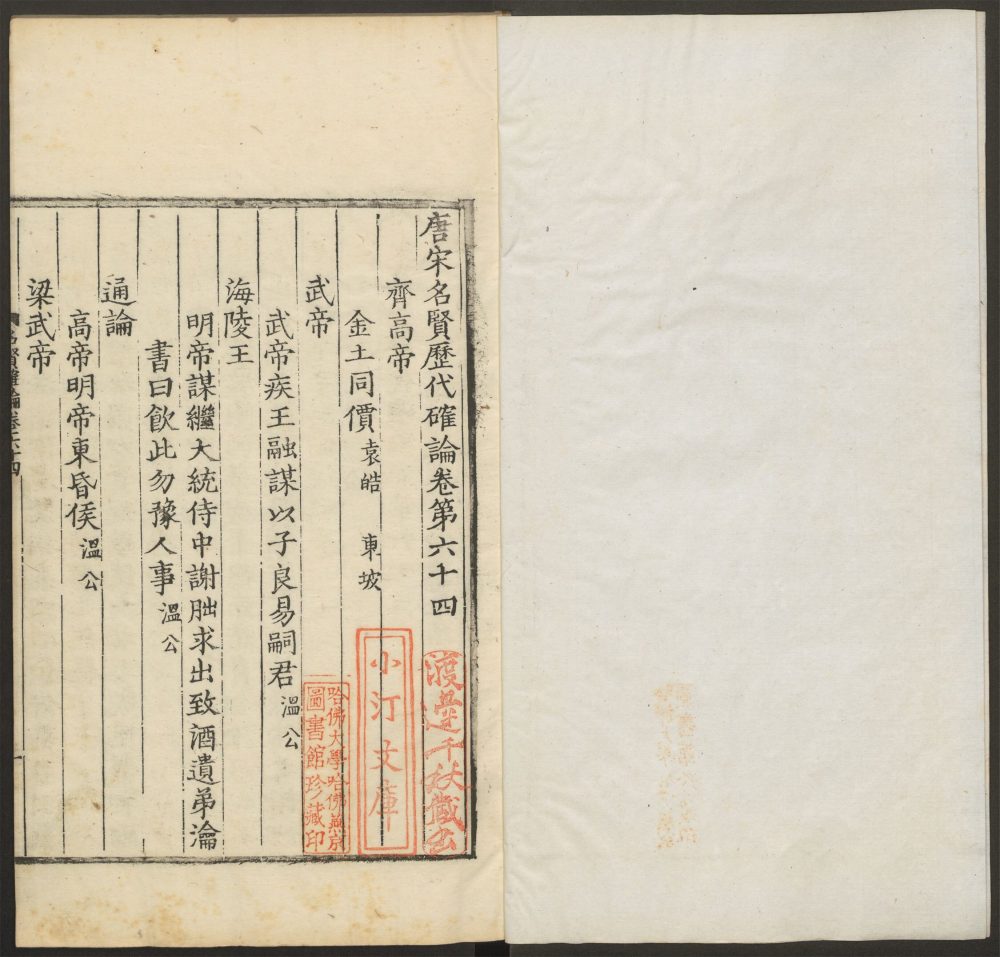 唐宋名賢歷代確論卷第六十四
齊高帝
金土同價 袁皓 東坡
武帝
武帝疾王融謀以子良易嗣君 溫公
海陵王
明帝謀繼大統侍中謝朏求出致酒遺弟瀹
書曰飲此勿豫人事 溫公
通論
高帝明帝東昏侯 溫公
梁武帝
名賢確論卷六十四
渡邊千秋藏書
小汀文庫
哈佛大學哈佛燕京
圖書館珍藏印